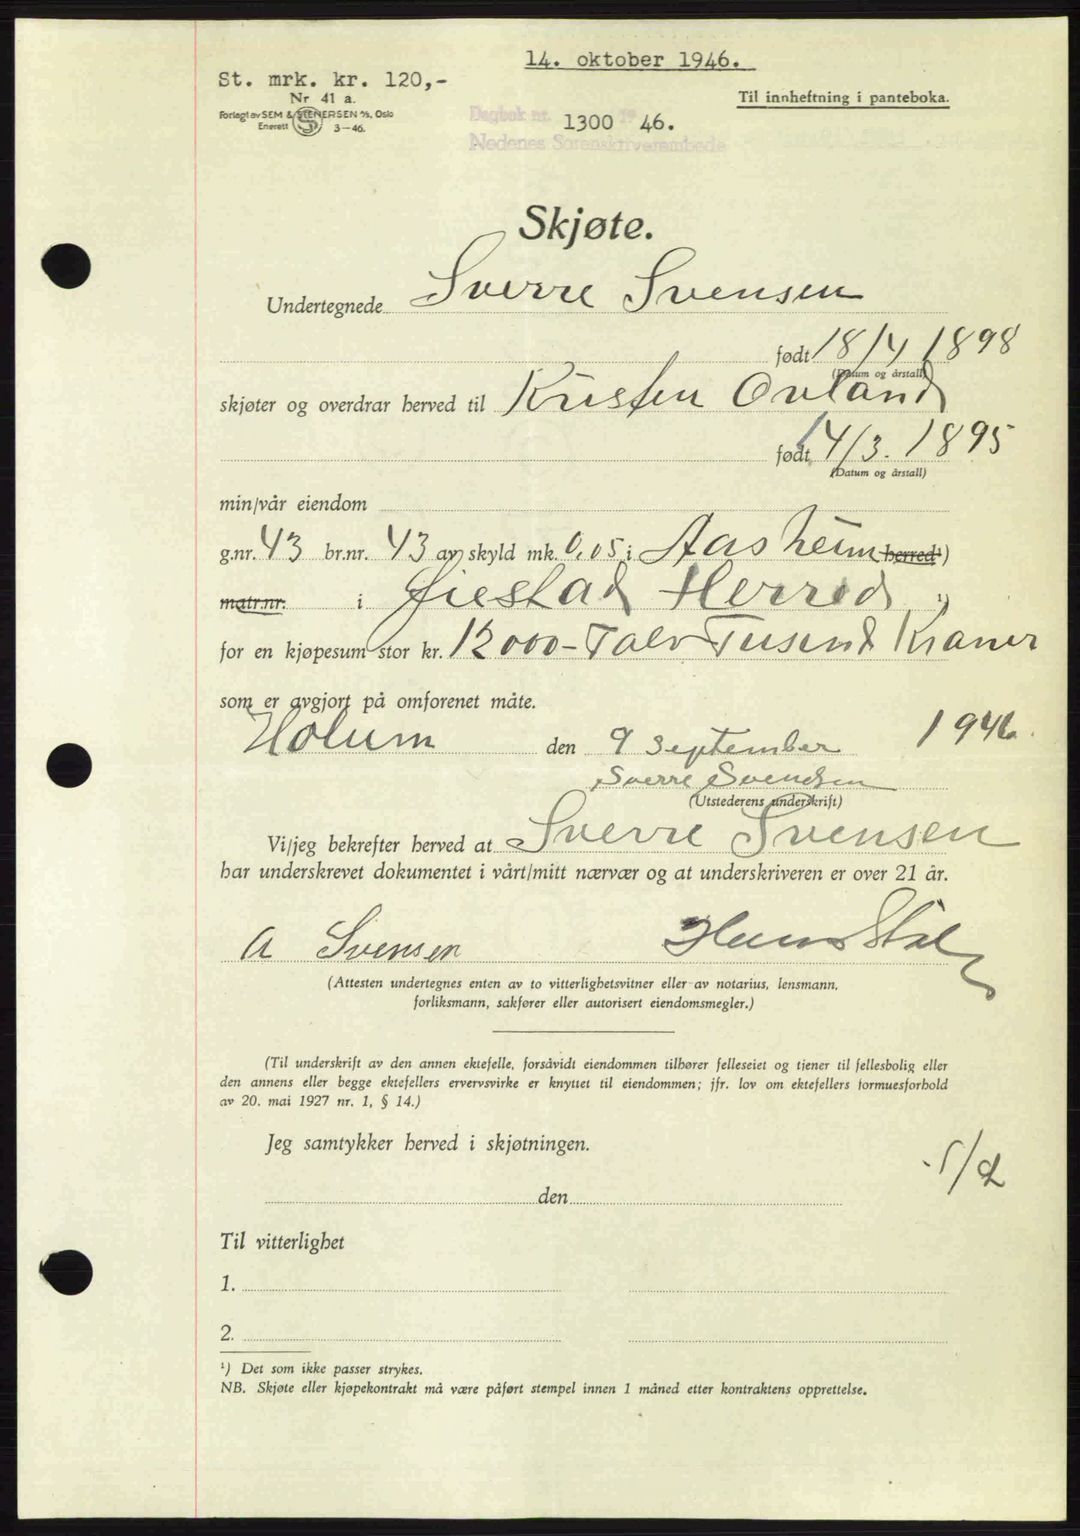 14. oktober 1946.
St. mrk. kr. 120,-
Nr 41 a.
Til innheftning i panteboka.
Forlagt av SEM & STENERSEN A/S, Oslo
Enerett 3-46.
Dagbok nr. 1300 19 46.
Nedenes Sorenskriverembede
Skjøte.
Undertegnede Sverre Svensen
født 18/4 1898
(Datum og årstall)
skjøter og overdrar herved til Kristen Ovland
født 14/3. 1895
(Datum og årstall)
min/vår eiendom
g.nr. 43 br.nr. 43 av skyld mk. 0,05 i Aasheim herred ¹)
matr.nr. i Øiestad Herred ¹)
for en kjøpesum stor kr. 12000 - Tolv Tusend Kroner
som er avgjort på omforenet måte.
Holum den 9 September 1946.
Sverre Svendsen
(Utstederens underskrift)
Vi/jeg bekrefter herved at Sverre Svensen
har underskrevet dokumentet i vårt/mitt nærvær og at underskriveren er over 21 år.
A Svensen Hans
(Attesten undertegnes enten av to vitterlighetsvitner eller av notarius, lensmann,
forliksmann, sakfører eller autorisert eiendomsmegler.)
(Til underskrift av den annen ektefelle, forsåvidt eiendommen tilhører felleseiet og tjener til fellesbolig eller
den annens eller begge ektefellers ervervsvirke er knyttet til eiendommen; jfr. lov om ektefellers formuesforhold
av 20. mai 1927 nr. 1, § 14.)
Jeg samtykker herved i skjøtningen.
den
Til vitterlighet
1.
2.
¹) Det som ikke passer strykes.
NB. Skjøte eller kjøpekontrakt må være påført stempel innen 1 måned etter kontraktens opprettelse.